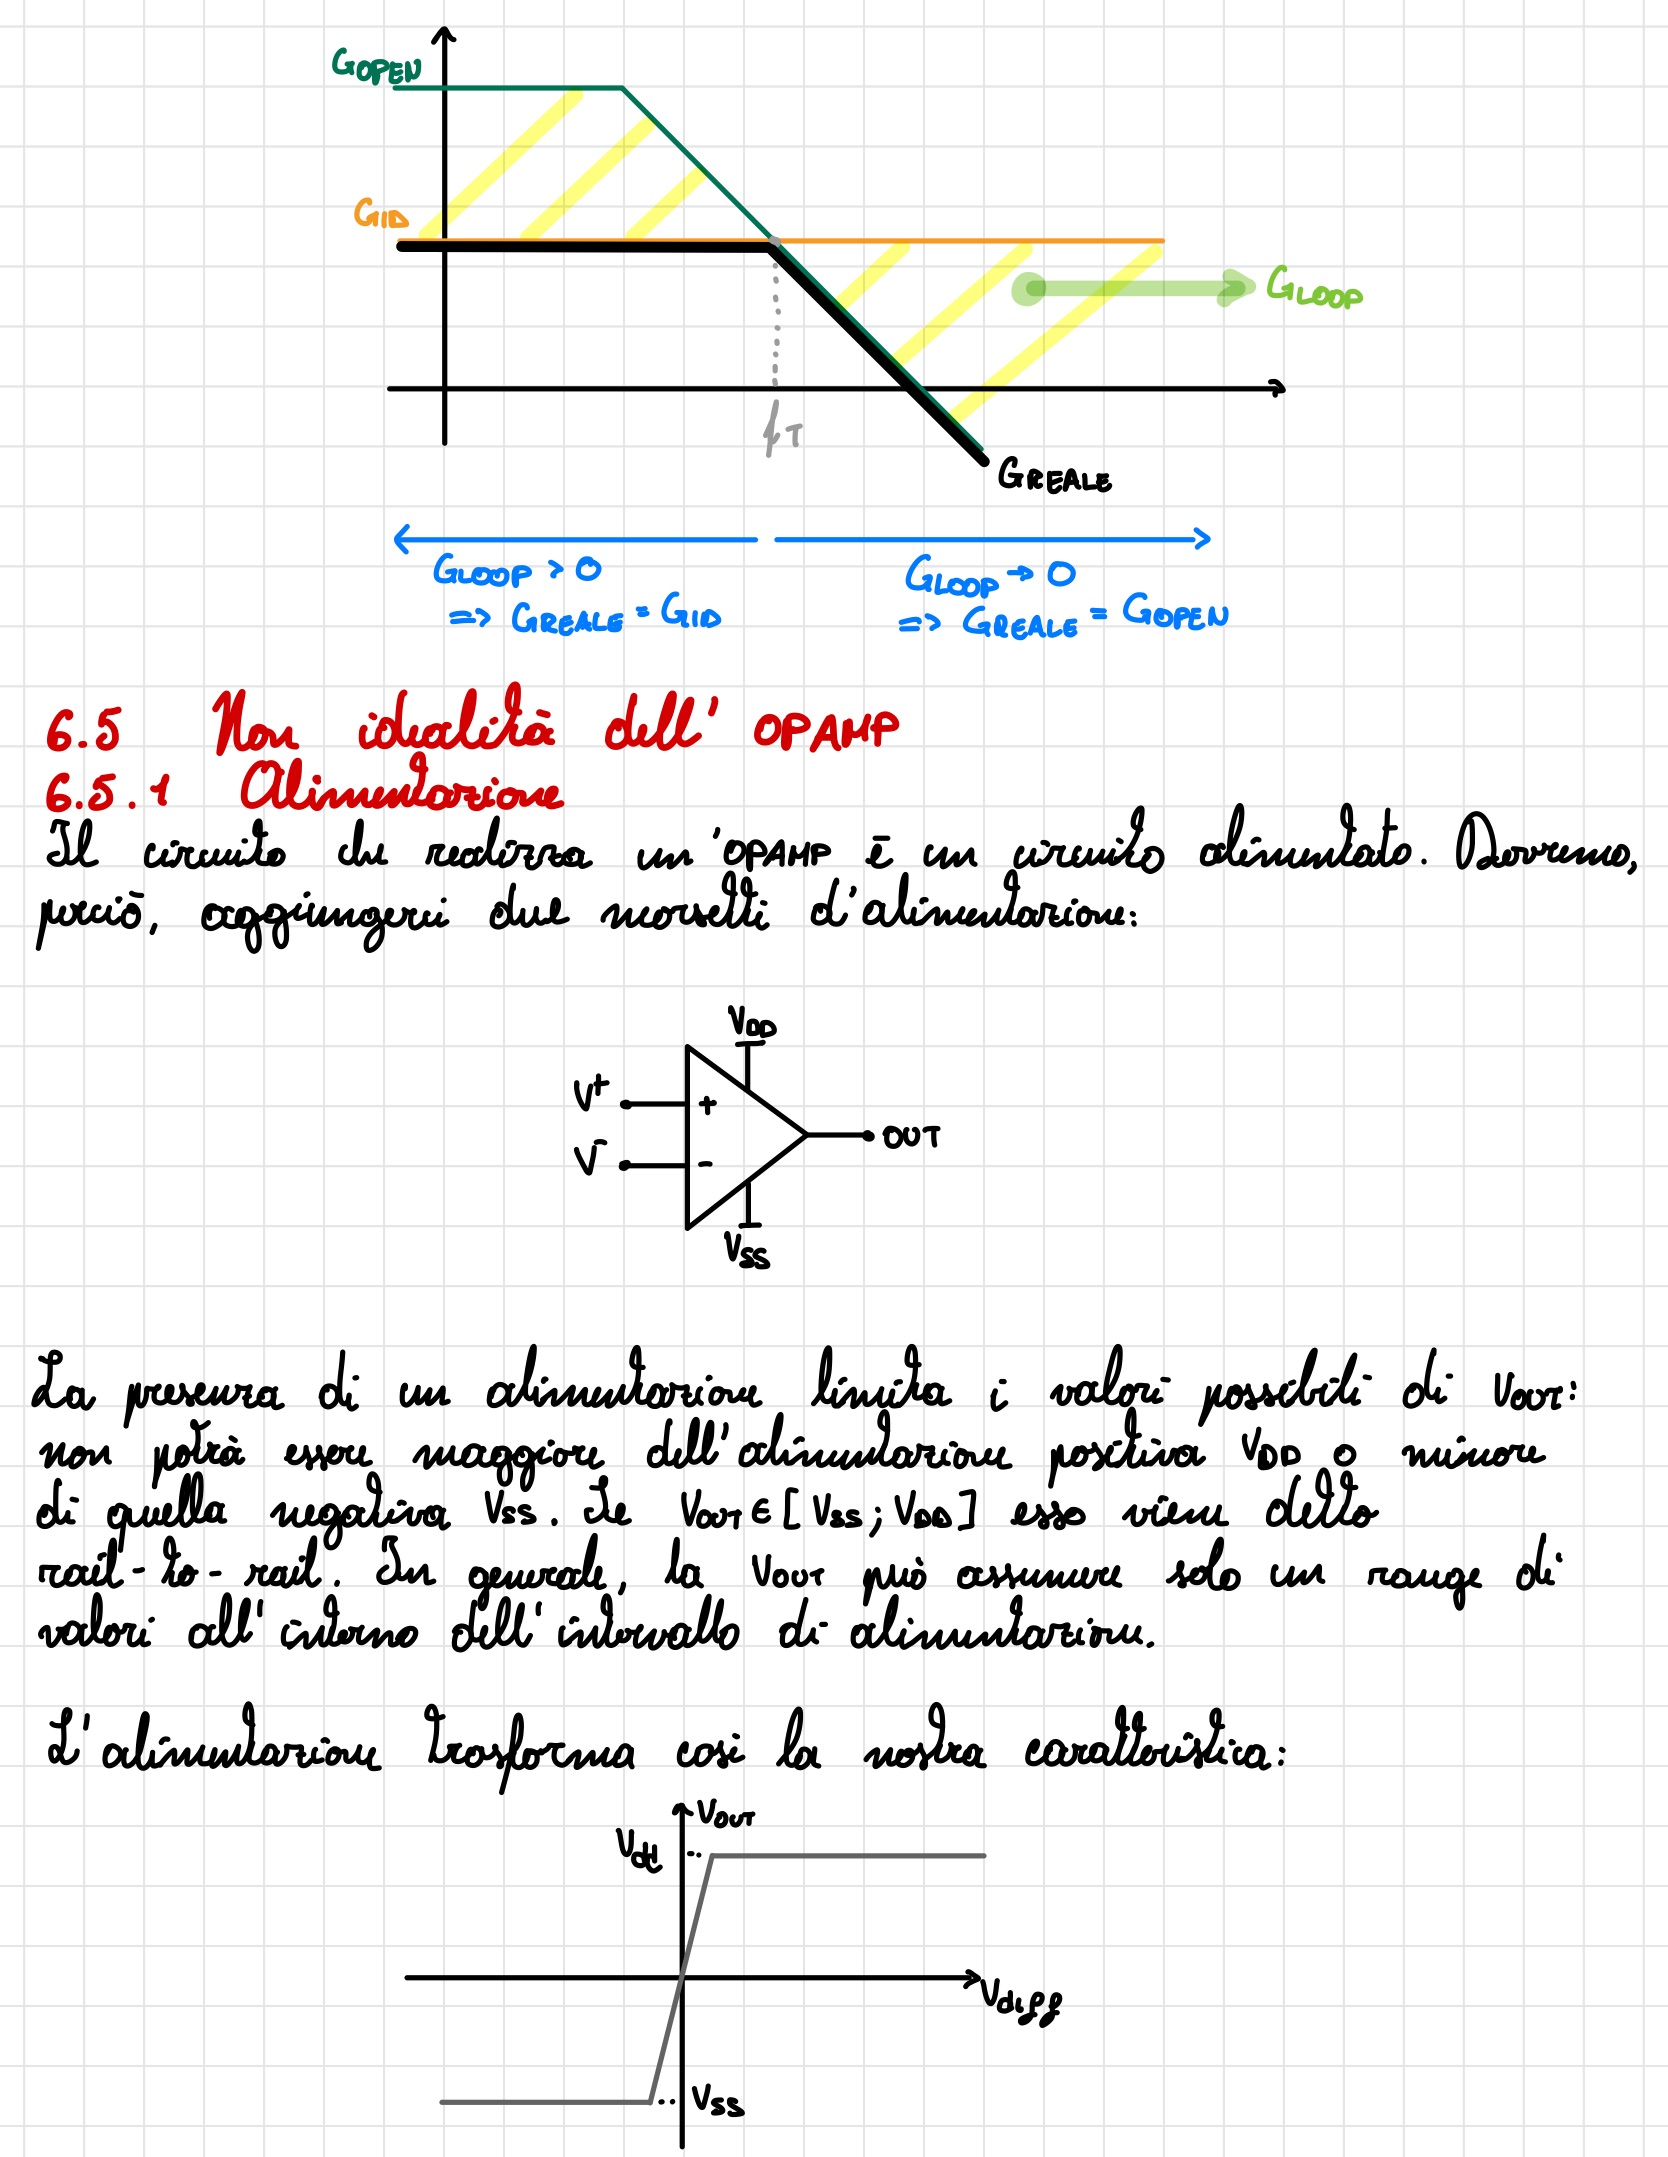 GOPEN
GID
GLOOP
fT
GREALE
GLOOP > 0
GLOOP → 0
=> GREALE = GID
=> GREALE = GOPEN
6.5 Non idealità dell' OPAMP
6.5.1 Alimentazione
Il circuito che realizza un'OPAMP è un circuito alimentato. Dovremo,
perciò, aggiungerci due morsetti d'alimentazione:
VDD
V+
+
V-
-
OUT
VSS
La presenza di un alimentazione limita i valori possibili di VOUT:
non potrà essere maggiore dell'alimentazione positiva VDD o minore
di quella negativa VSS. Se VOUT ∈ [VSS; VDD] esso viene detto
rail-to-rail. In generale, la VOUT può assumere solo un range di
valori all'interno dell'intervallo di alimentazione.
L'alimentazione trasforma così la nostra caratteristica:
VOUT
Vdd
Vdiff
VSS